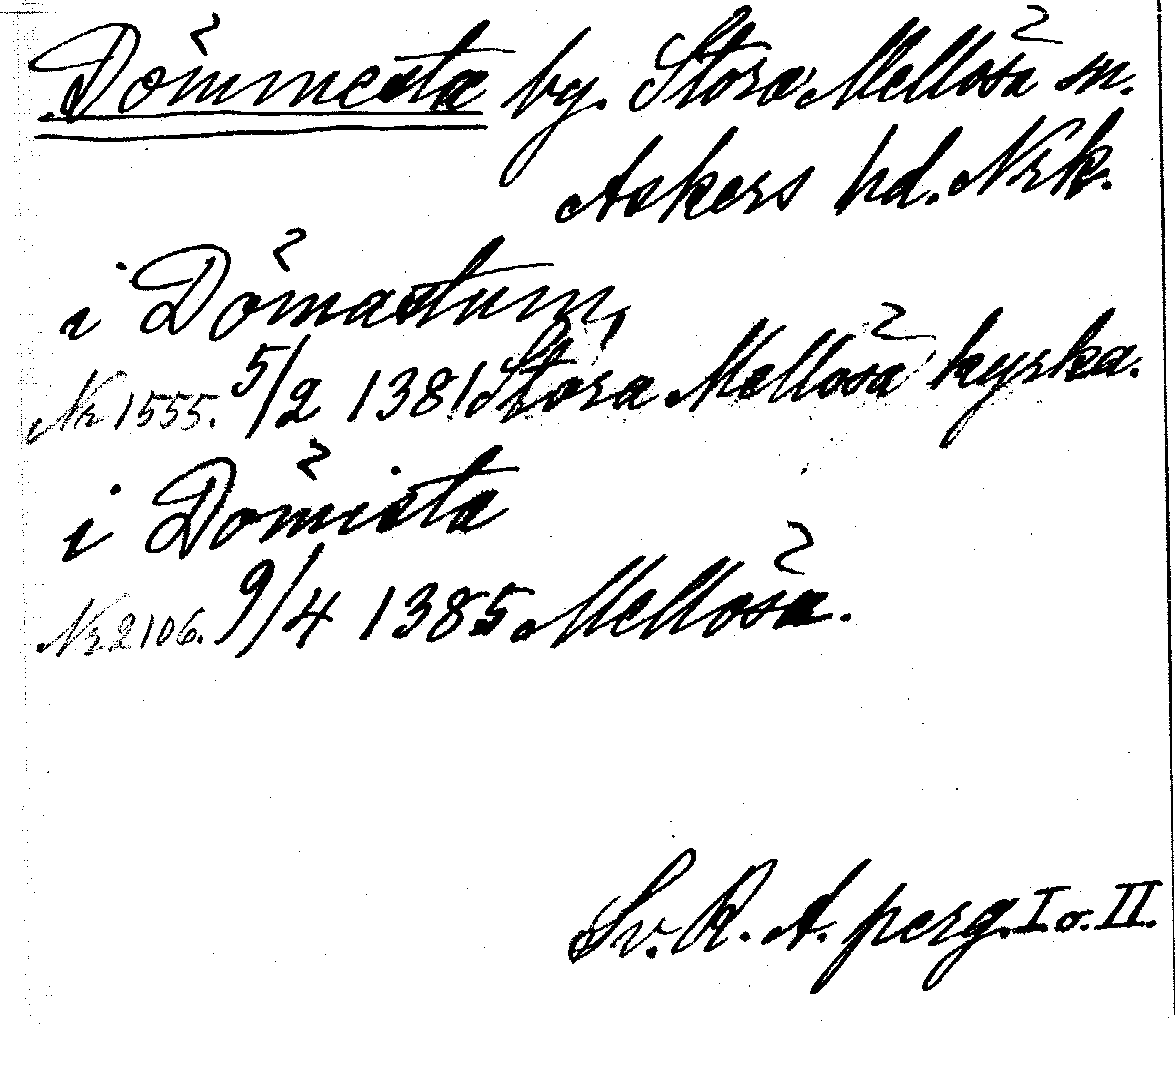 Dömmesta by. Stora Mellösa sn.
Askers hd. Nrk.
i Dömastum,
Nr 1555. 5/2 1381 Stora Mellösa kyrka.
i Dömista
Nr 2106. 9/4 1385. Mellösa.
Sv. R. A. perg. I o. II.